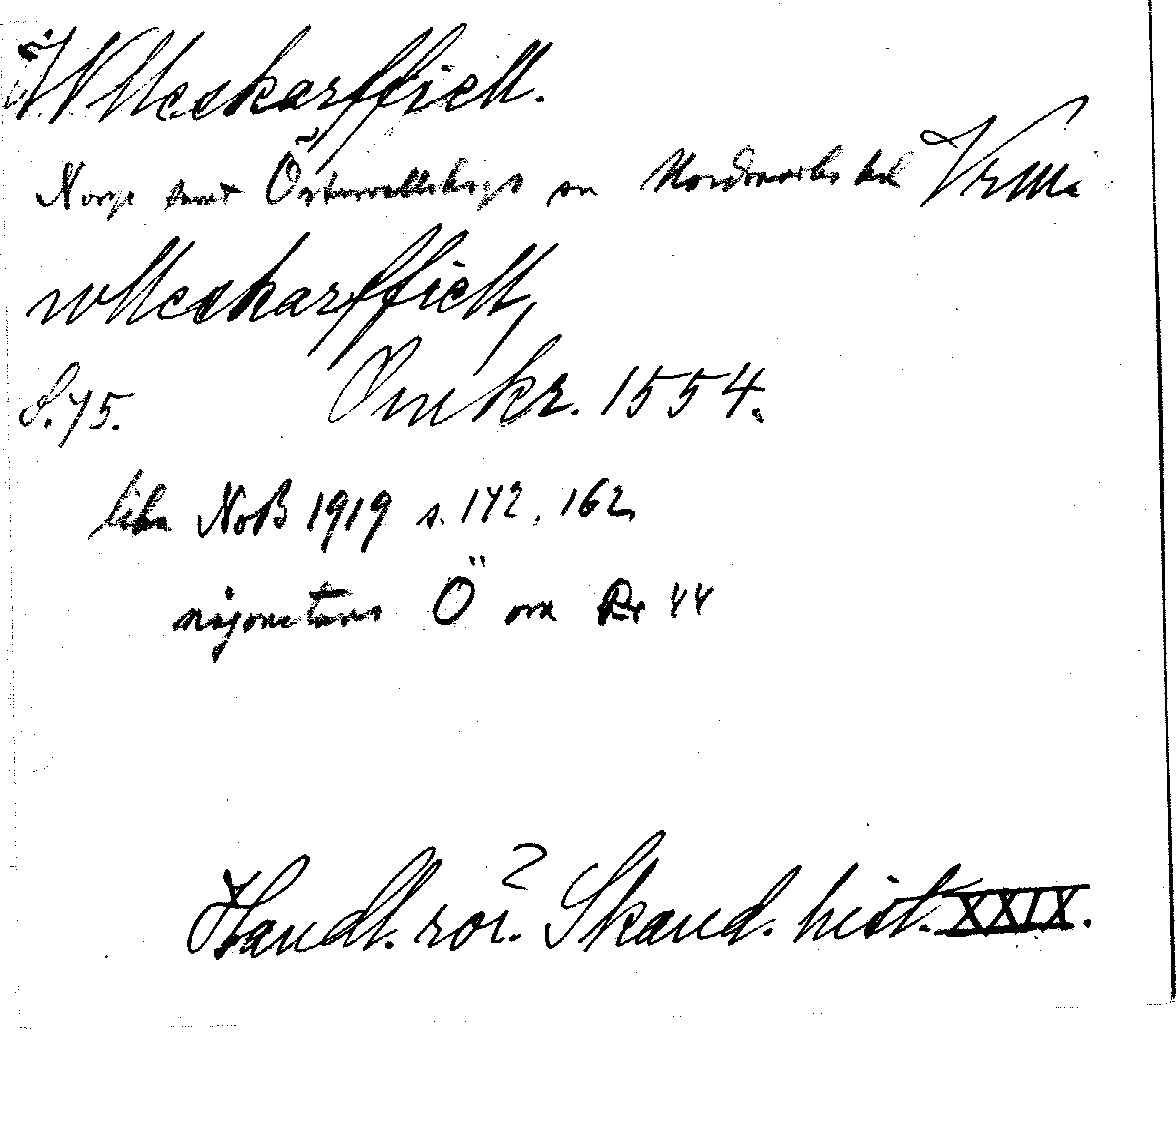 Wlleskarffiell.
Norge samt Östervallskogs sn Nordmarks hd Vrml.
wlleskarffiell,
S. 75. Omkr. 1554.
NoB 1919 s. 172, 162
någonstans Ö om Rr 44
Handl. rör. Skand. hist. XXIX.